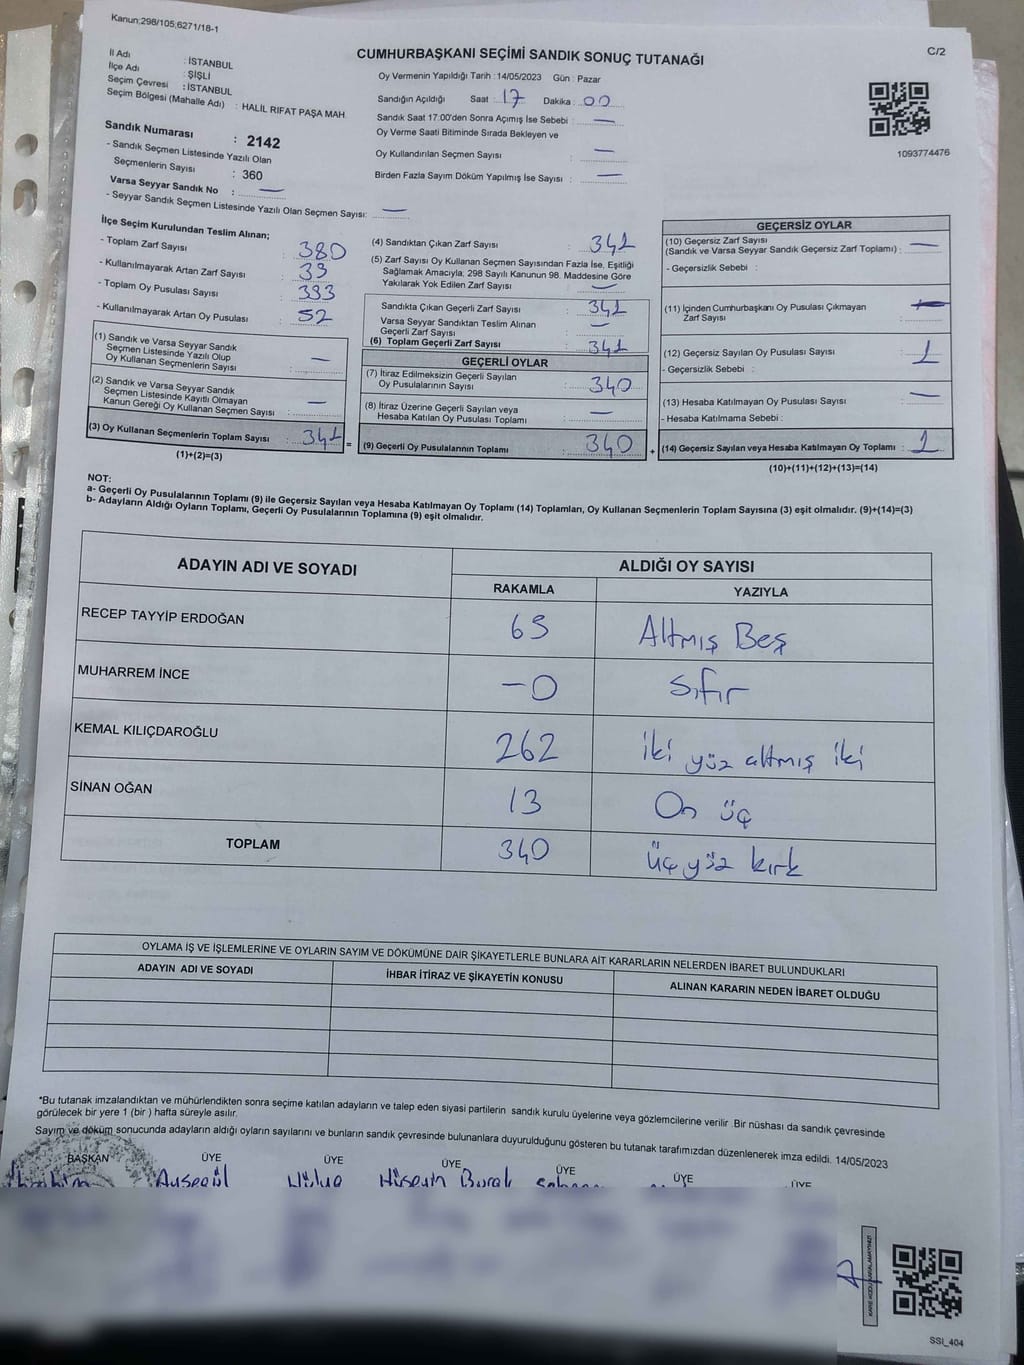 Kanun;298/105;6271/18-1
C/2
CUMHURBAŞKANI SEÇİMİ SANDIK SONUÇ TUTANAĞI
İl Adı : İSTANBUL
İlçe Adı : ŞİŞLİ
Seçim Çevresi : İSTANBUL
Seçim Bölgesi (Mahalle Adı) : HALİL RIFAT PAŞA MAH.
Sandık Numarası : 2142
- Sandık Seçmen Listesinde Yazılı Olan
Seçmenlerin Sayısı : 360
Varsa Seyyar Sandık No : —
- Seyyar Sandık Seçmen Listesinde Yazılı Olan Seçmen Sayısı: —
Oy Vermenin Yapıldığı Tarih : 14/05/2023 Gün : Pazar
Sandığın Açıldığı Saat : 17 Dakika : 00
Sandık Saat 17:00'den Sonra Açımış İse Sebebi : —
Oy Verme Saati Bitiminde Sırada Bekleyen ve
Oy Kullandırılan Seçmen Sayısı : —
Birden Fazla Sayım Döküm Yapılmış İse Sayısı : —
1093774476
İlçe Seçim Kurulundan Teslim Alınan;
- Toplam Zarf Sayısı : 380
- Kullanılmayarak Artan Zarf Sayısı : 33
- Toplam Oy Pusulası Sayısı : 393
- Kullanılmayarak Artan Oy Pusulası : 52
(1) Sandık ve Varsa Seyyar Sandık
Seçmen Listesinde Yazılı Olup
Oy Kullanan Seçmenlerin Sayısı : —
(2) Sandık ve Varsa Seyyar Sandık
Seçmen Listesinde Kayıtlı Olmayan
Kanun Gereği Oy Kullanan Seçmen Sayısı : —
(3) Oy Kullanan Seçmenlerin Toplam Sayısı : 341 =
(1)+(2)=(3)
(4) Sandıktan Çıkan Zarf Sayısı : 341
(5) Zarf Sayısı Oy Kullanan Seçmen Sayısından Fazla İse, Eşitliği
Sağlamak Amacıyla; 298 Sayılı Kanunun 98. Maddesine Göre
Yakılarak Yok Edilen Zarf Sayısı : —
Sandıkta Çıkan Geçerli Zarf Sayısı : 341
Varsa Seyyar Sandıktan Teslim Alınan
Geçerli Zarf Sayısı : —
(6) Toplam Geçerli Zarf Sayısı : 341
GEÇERLİ OYLAR
(7) İtiraz Edilmeksizin Geçerli Sayılan
Oy Pusulalarının Sayısı : 340
(8) İtiraz Üzerine Geçerli Sayılan veya
Hesaba Katılan Oy Pusulası Toplamı : —
(9) Geçerli Oy Pusulalarının Toplamı : 340 +
GEÇERSİZ OYLAR
(10) Geçersiz Zarf Sayısı
(Sandık ve Varsa Seyyar Sandık Geçersiz Zarf Toplamı) : —
- Geçersizlik Sebebi :
(11) İçinden Cumhurbaşkanı Oy Pusulası Çıkmayan
Zarf Sayısı :
(12) Geçersiz Sayılan Oy Pusulası Sayısı : 1
- Geçersizlik Sebebi :
(13) Hesaba Katılmayan Oy Pusulası Sayısı : —
- Hesaba Katılmama Sebebi :
(14) Geçersiz Sayılan veya Hesaba Katılmayan Oy Toplamı : 1
(10)+(11)+(12)+(13)=(14)
NOT:
a- Geçerli Oy Pusulalarının Toplamı (9) ile Geçersiz Sayılan veya Hesaba Katılmayan Oy Toplamı (14) Toplamları, Oy Kullanan Seçmenlerin Toplam Sayısına (3) eşit olmalıdır. (9)+(14)=(3)
b- Adayların Aldığı Oyların Toplamı, Geçerli Oy Pusulalarının Toplamına (9) eşit olmalıdır.
ADAYIN ADI VE SOYADI ALDIĞI OY SAYISI
RAKAMLA YAZIYLA
RECEP TAYYİP ERDOĞAN 65 Altmış Beş
MUHARREM İNCE -0 Sıfır
KEMAL KILIÇDAROĞLU 262 iki yüz altmış iki
SİNAN OĞAN 13 On üç
TOPLAM 340 üç yüz kırk
OYLAMA İŞ VE İŞLEMLERİNE VE OYLARIN SAYIM VE DÖKÜMÜNE DAİR ŞİKAYETLERLE BUNLARA AİT KARARLARIN NELERDEN İBARET BULUNDUKLARI
ADAYIN ADI VE SOYADI İHBAR İTİRAZ VE ŞİKAYETİN KONUSU ALINAN KARARIN NEDEN İBARET OLDUĞU
*Bu tutanak imzalandıktan ve mühürlendikten sonra seçime katılan adayların ve talep eden siyasi partilerin sandık kurulu üyelerine veya gözlemcilerine verilir .Bir nüshası da sandık çevresinde
görülecek bir yere 1 (bir ) hafta süreyle asılır.
Sayım ve döküm sonucunda adayların aldığı oyların sayılarını ve bunların sandık çevresinde bulunanlara duyurulduğunu gösteren bu tutanak tarafımızdan düzenlenerek imza edildi. 14/05/2023
BAŞKAN ÜYE ÜYE ÜYE ÜYE ÜYE ÜYE
İbrahim Aysegül Hülya Hüseyin Burak
SSI_404